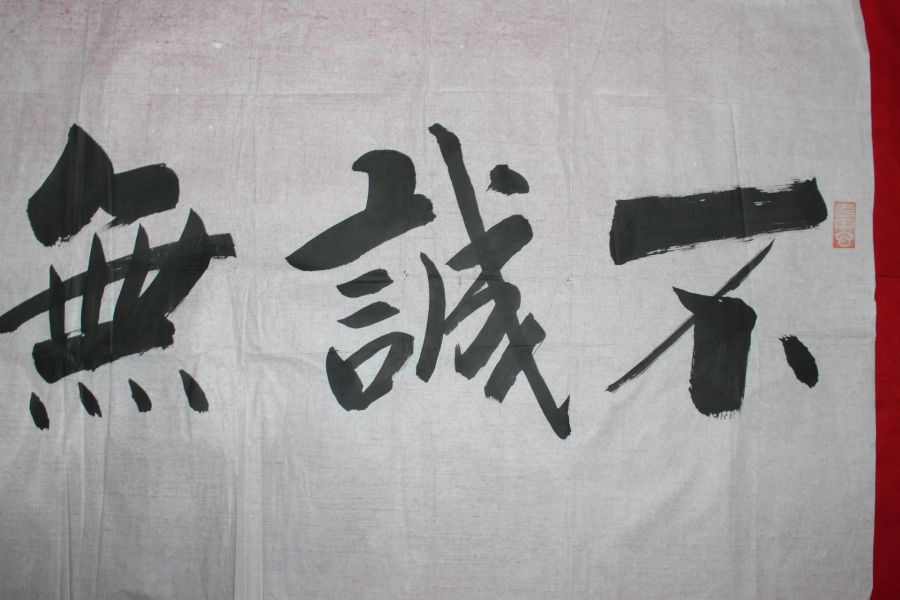 不誠無